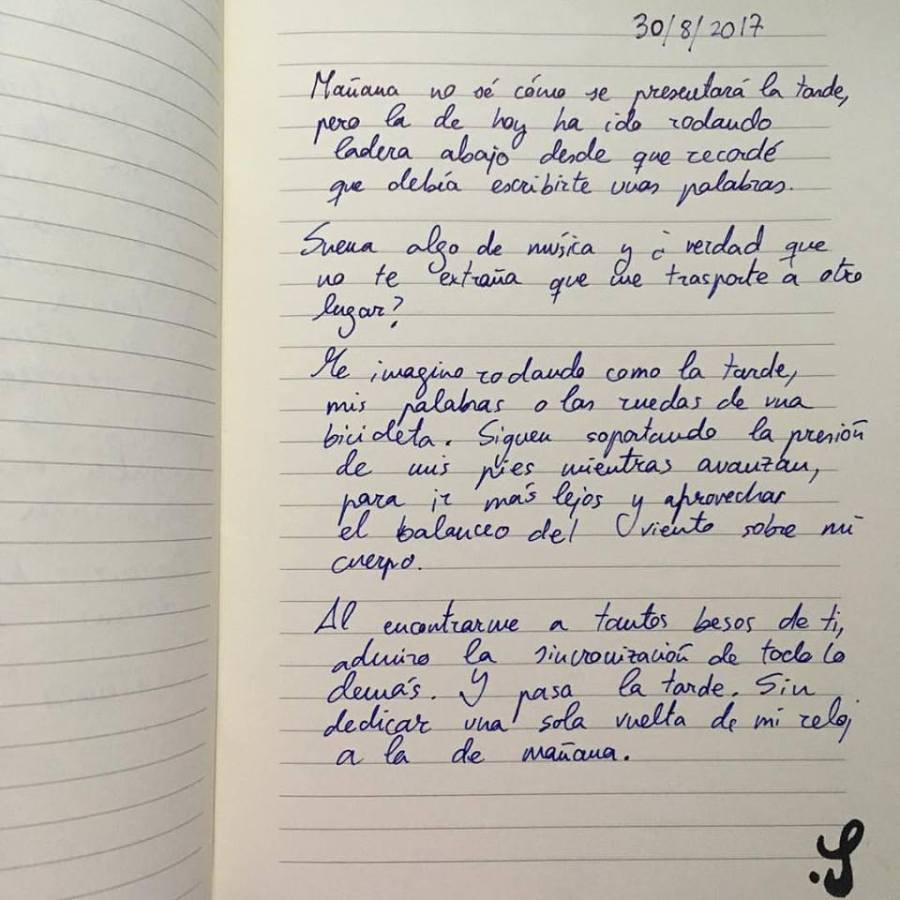 30/8/2017
Mañana no sé cómo se presentará la tarde,
pero la de hoy ha ido rodando
ladera abajo desde que recordé
que debía escribirte unas palabras.
Suena algo de música y ¿ verdad que
no te extraña que me trasporte a otro
lugar?
Me imagino rodando como la tarde,
mis palabras o las ruedas de una
bicicleta. Siguen soportando la presión
de mis pies mientras avanzan,
para ir más lejos y aprovechar
el balanceo del viento sobre mi
cuerpo.
Al encontrarme a tantos besos de ti,
admiro la sincronización de todo lo
demás. Y pasa la tarde. Sin
dedicar una sola vuelta de mi reloj
a la de mañana.